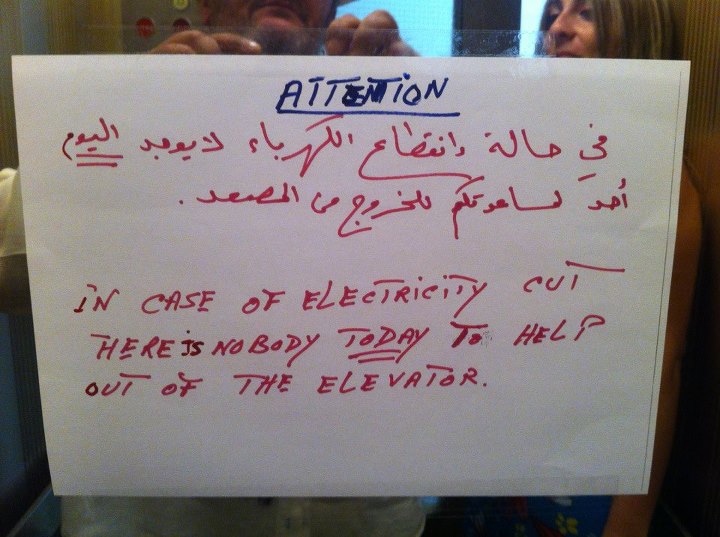 ATTENTION
في حالة وانقطاع الكهرباء لا يوجد اليوم
أحد لمساعدتكم للخروج من المصعد.
IN CASE OF ELECTRICITY CUT
THERE IS NOBODY TODAY TO HELP
OUT OF THE ELEVATOR.